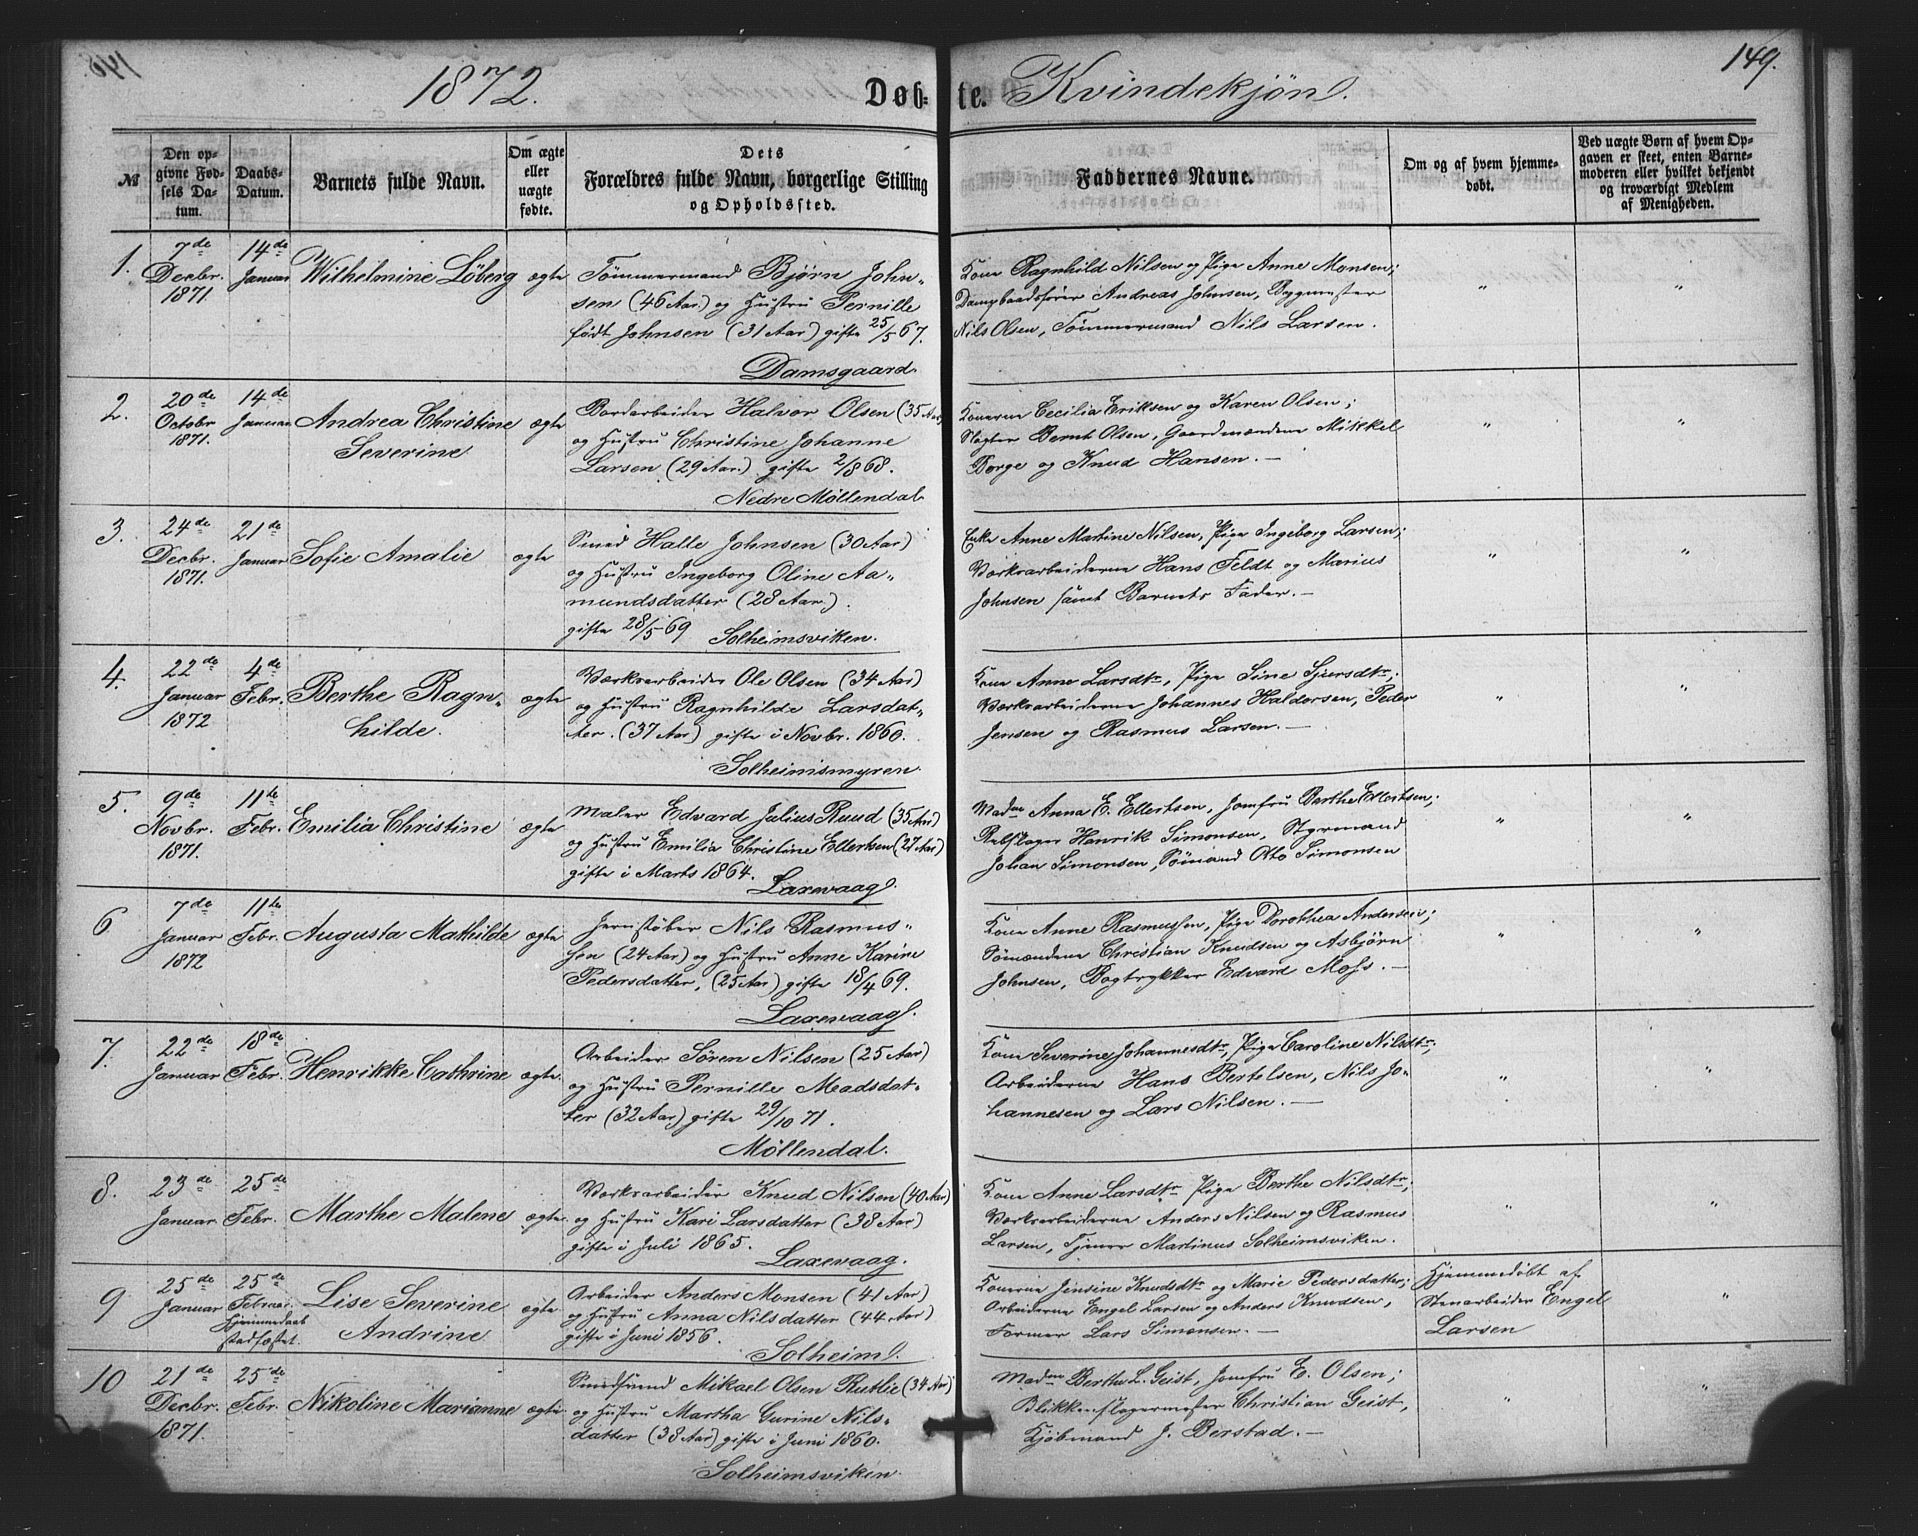 1872.
Døb-
te.
Kvindekjøn.
149.
№
Den op-
givne Fød-
sels Da-
tum.
Daabs-
Datum.
Barnets fulde Navn.
Om ægte
eller
uægte
fødte.
Dets
Forældres fulde Navn, borgerlige Stilling
og Opholdssted.
Faddernes Navne.
Om og af hvem hjemme-
døbt.
Ved uægte Børn af hvem Op-
gaven er skeet, enten Barne-
moderen eller hvilket bekjendt
og troværdigt Medlem
af Menigheden.
1.
7de
Decbr.
1871.
14de
Januar
Wilhelmine Löberg
ægte
Tömmermand Bjørn John-
sen (46 Aar) og Hustru Pernille
født Johnsen (31 Aar) gifte 25/5 67.
Damsgaard.
Kone Ragnhild Nilsen og Pige Anne Monsen;
Dampbaadsfører Andreas Johnsen, Bygmester
Nils Olsen, Tømmermand Nils Larsen.
"
"
2.
20de
Octobr
1871.
14de
Januar
Andrea Christine
Severine
ægte
Bordarbeider Halvor Olsen (35 Aar)
og Hustru Christine Johanne
Larsen (29 Aar.) gifte 2/8 68.
Nedre Møllendal
Konerne Cecilia Eriksen og Karen Olsen;
Slagter Bernt Olsen, Gaardmændene Mikkel
Borge og Knud Hansen. —
"
"
3.
24de
Decbr.
1871.
21de
Januar
Sofie Amalie
ægte
Smed Halle Johnsen (30 Aar)
og Hustru Ingeborg Oline Aa-
mundsdatter (28 Aar.).
gifte 28/5 69 Solheimsviken.
Enke Anne Martine Nilsen, Pige Ingeborg Larsen;
Værksarbeiderne Hans Feldt og Marius
Johnsen samt Barnets Fader. —
"
"
4.
22de
Januar
1872
4de
Febr.
Berthe Ragn-
hilde.
ægte
Værksarbeider Ole Olsen (34 Aar)
og Hustru Ragnhilde Larsdat-
ter. (37 Aar) gifte i Novbr. 1860.
Solheimsmyren.
Kone Anne Larsdtr, Pige Sine Sjursdtr;
Værksarbeiderne Johannes Haldorsen, Peder
Jensen og Rasmus Larsen. —
"
"
5.
9de
Novbr.
1871.
11te
Febr.
Emilia Christine
ægte
Maler Edvard Julius Ruud (35 Aar)
og Hustru Emilia Christine Ellertsen (27 Aar)
gifte i Marts 1864.
Laxevaag.
Madm Anna E. Ellertsen, Jomfru Berthe Ellertsen;
Rebslager Henrik Simonsen, Styrmand
Johan Simonsen, Sømand Otto Simonsen
"
"
6
7de
Januar
1872
11te
Febr.
Augusta Mathilde
ægte
Jernstøber Nils Rasmus-
sen (24 Aar) og Hustru Anne Karine
Pedersdatter, (25 Aar) gifte 18/4 69.
Laxevaag.
Kone Anne Rasmussen, Pige Dorothea Andersen;
Sømændene Christian Knudsen og Asbjørn
Johnsen, Bogtrykker Edvard Moss. —
"
"
7.
22de
Januar
18de
Febr.
Henrikke Cathrine
ægte
Arbeider Søren Nilsen (25 Aar)
og Hustru Pernille Meadsdat-
ter (32 Aar) gifte 29/10 71.
Møllendal.
Kone Severine Johannesdtr, Pige Caroline Nilsdtr;
Arbeiderne Hans Bertelsen, Nils Jo-
hannesen og Lars Nilsen. —
"
"
8.
23de
Januar
25de
Febr.
Marthe Malene
ægte
Værksarbeider Knud Nilsen (40 Aar)
og Hustru Kari Larsdatter (38 Aar)
gifte i Juli 1865.
Laxevaag.
Kone Anne Larsdtr Pige Berthe Nilsdtr;
Værksarbeiderne Anders Nilsen og Rasmus
Larsen, Tjener Martinus Solheimsviken.
"
"
9
25de
Januar
25de
Februar.
Hjemmedaab
stadfæstet.
Lise Severine
Andrine
ægte
Arbeider Anders Monsen (41 Aar)
og Hustru Anna Nilsdatter (44 Aar)
gifte i Juni 1856.
Solheim.
Konerne Jensine Knudsdtr og Marie Pedersdatter;
Arbeiderne Engel Larsen og Anders Knudsen,
Former Lars Simonsen. —
Hjemmedøbt af
Stenarbeider Engel
Larsen
"
10
21de
Decbr.
1871.
25de
Febr.
Nikoline Marianne
ægte
Smedsvend Mikael Olsen Rutlie (34 Aar)
og Hustru Martha Gurine Nils-
datter (38 Aar) gifte i Juni 1860.
Solheimsviken.
Madm Berthe L. Geist, Jomfru E. Olsen;
Blikkenslagermester Christian Geist,
Kjøbmand J. Berstad. —
"
"